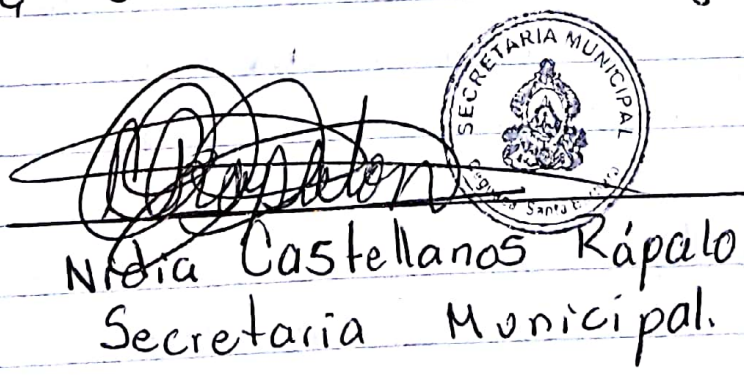 SECRETARIA MUNICIPAL
Santa B
Nidia Castellanos Rápalo
Secretaria Municipal.